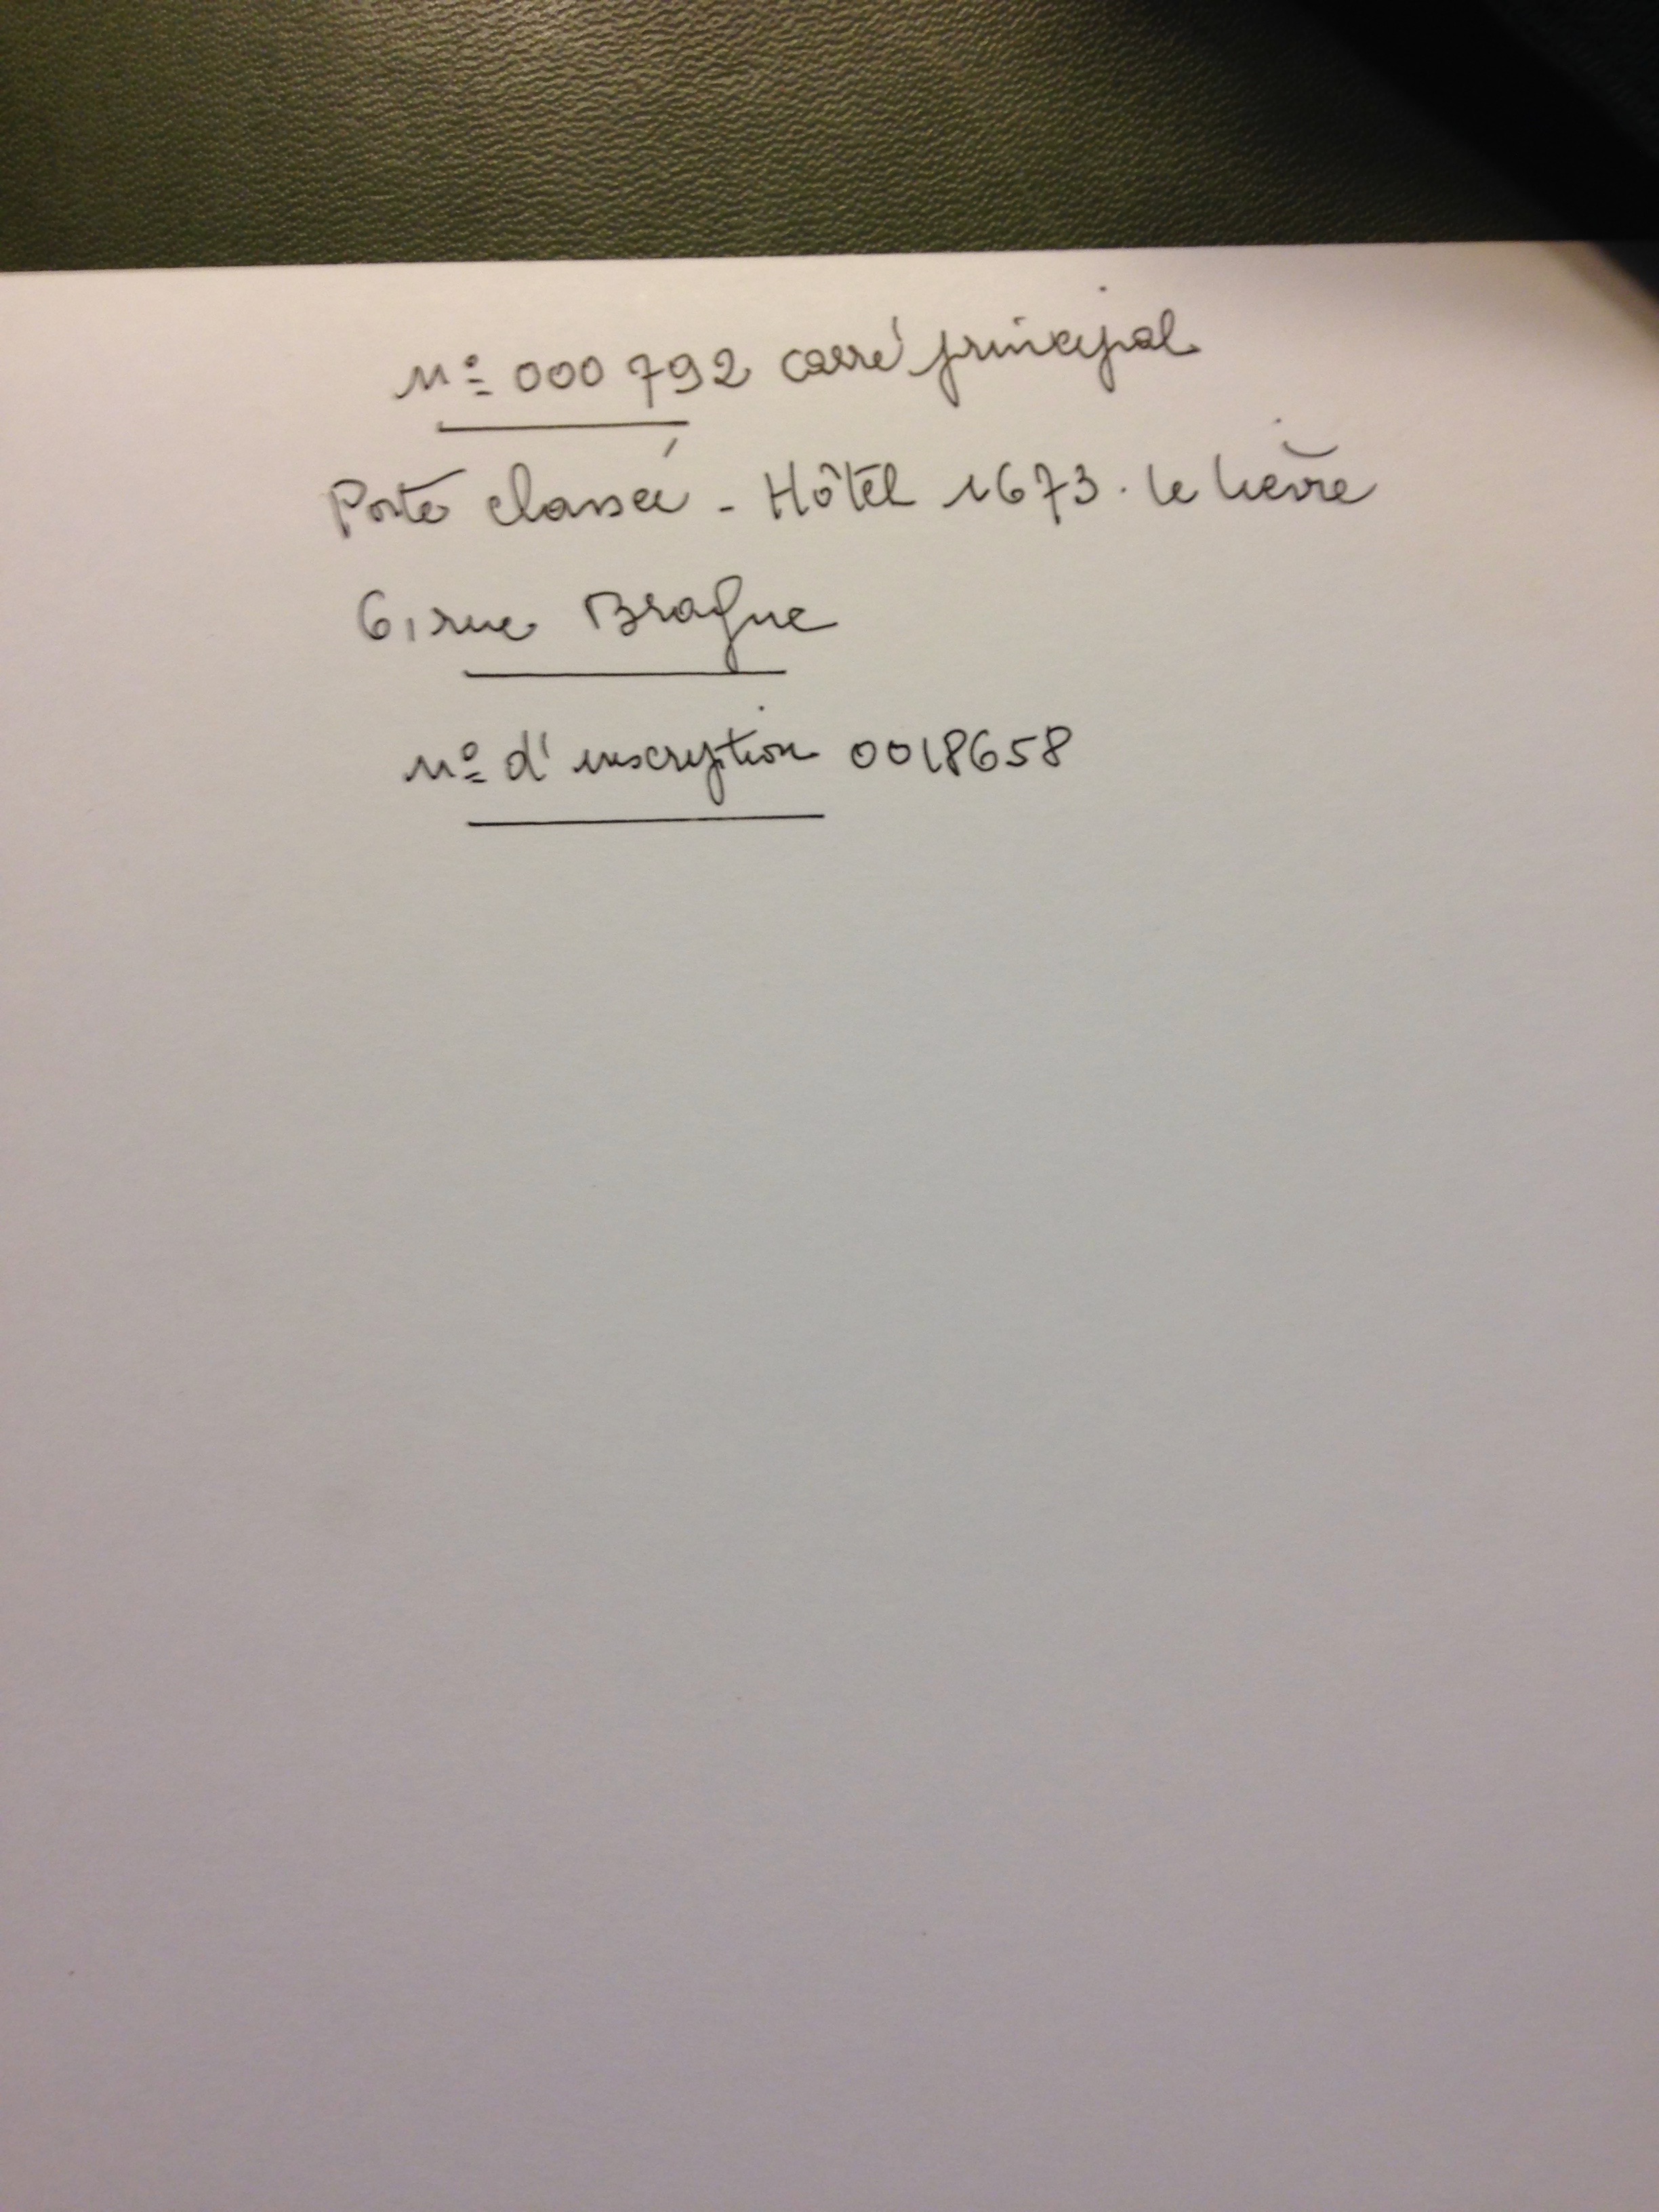 N° 000792 carré principal
Porte classée - Hôtel 1673. le lièvre
6, rue Braque
N° d'inscription 0018658